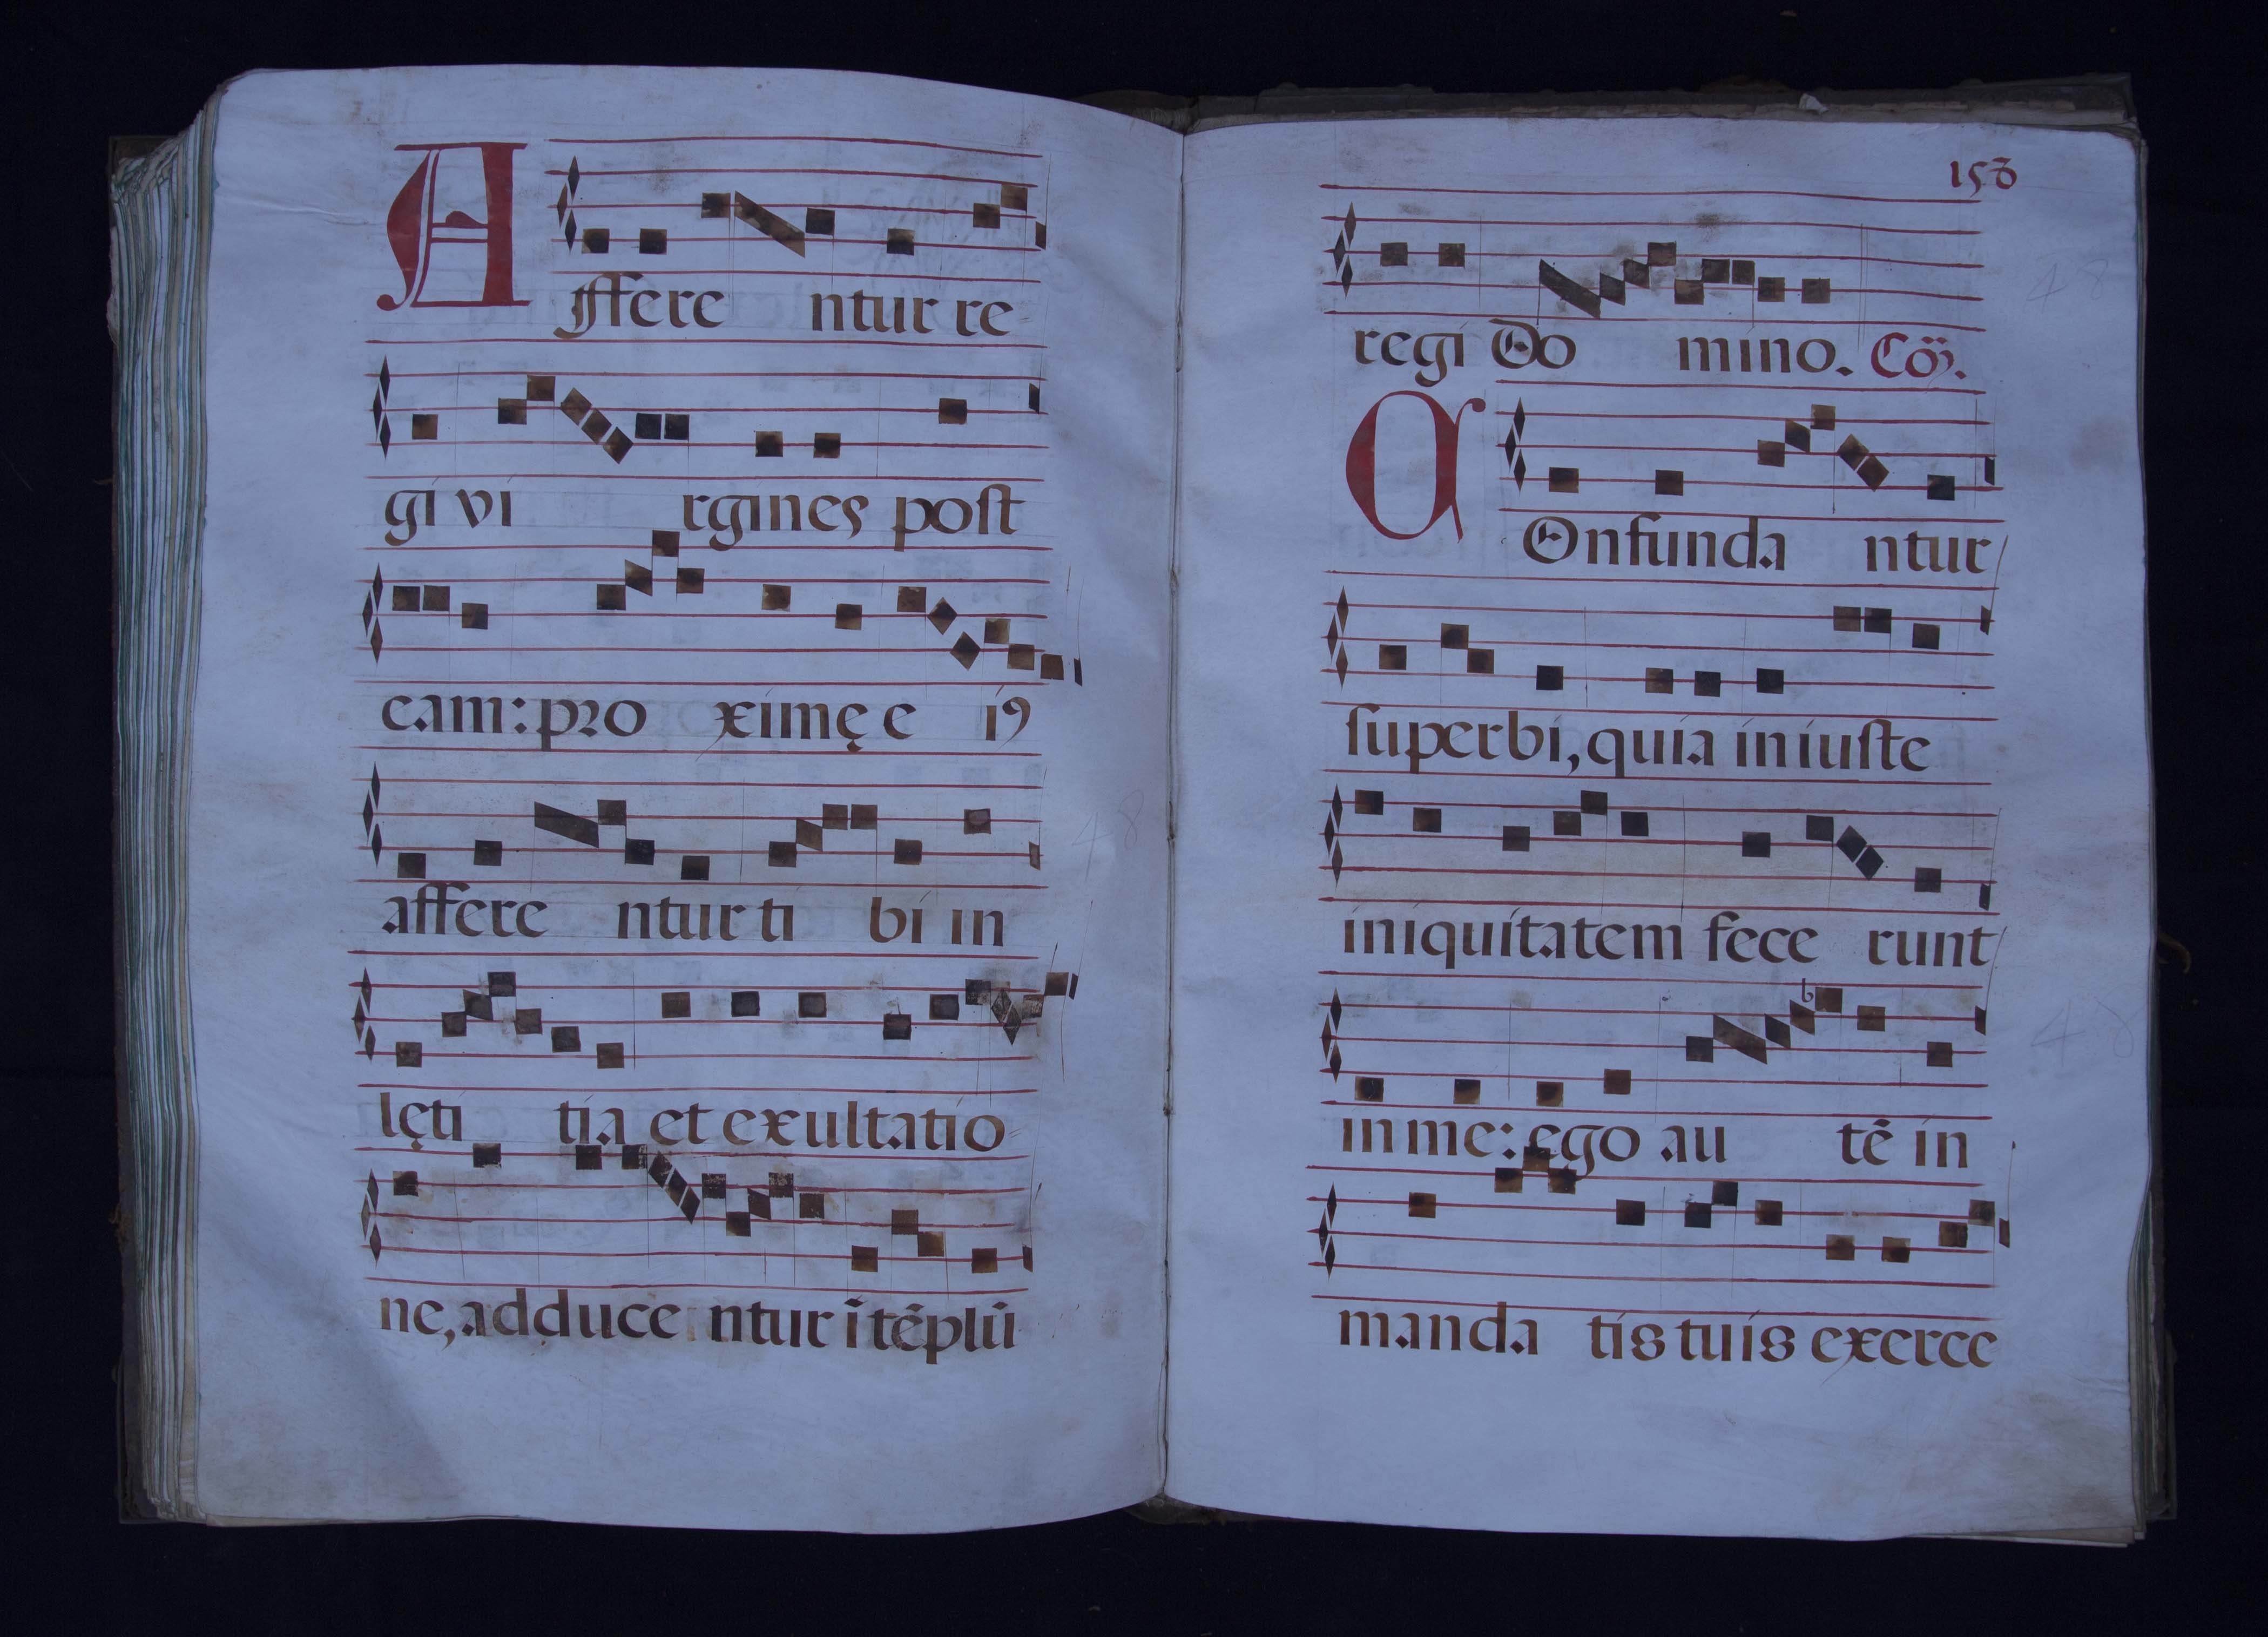 Affere ntur re-
gi vi rgines post
eam: pro ximę e i9
affere ntur ti bi in
lęti tia et exultatio-
ne, adduce ntur ī tēplū
158
regi Do mino. Cōō.
COnfunda ntur
superbi, quia iniuste
iniquitatem fece runt
in me: ego au tē in
manda tis tuis exerce
48
48
48